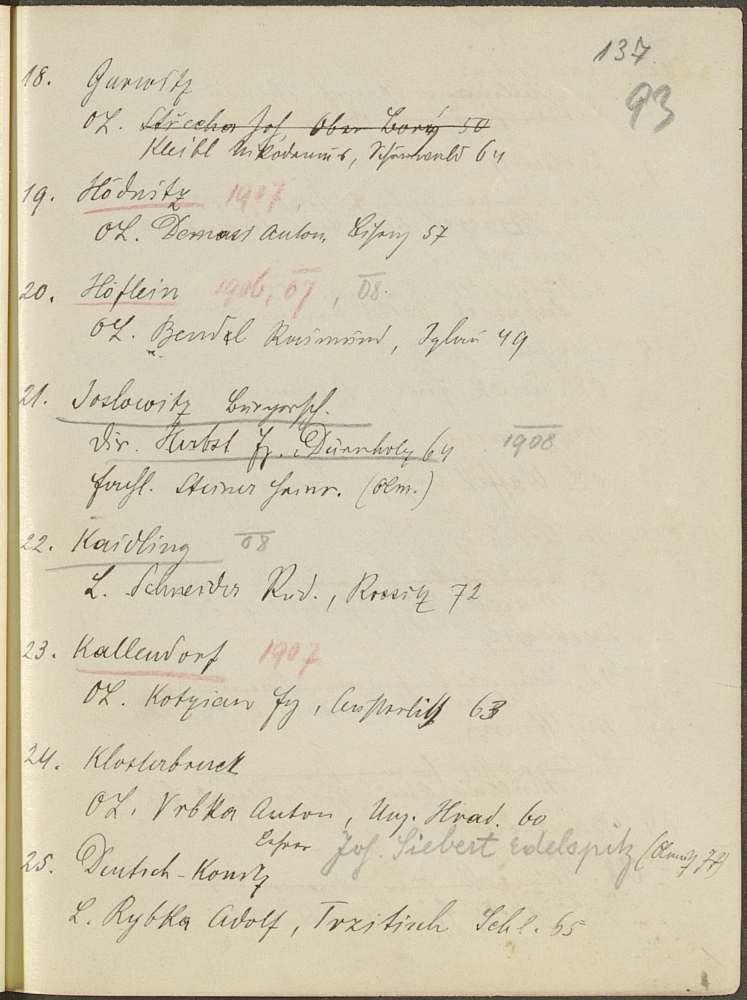 137.
93
18. Gurwitz
OL. Střecha Jos, Ober Bory 50
Kleibl Nikodemus, Schönwald 64
19. Hödnitz 1907,
OL. Demast Anton, 57
20. Höflein 1906, 07, 08.
OL. Bendel Raimund, Iglau 49
21. Joslowitz Bürgersch.
Dir. Herbst Fz., Dürnholz 64 1908
Fachl. Steiner Heinr. (Olm.)
22. Kaidling 08
L. Schneider Rud., Rossitz 72
23. Kallendorf 1907
OL. Kotzian Fz, Austerlitz 63
24. Klosterbruck
OL. Vrbka Anton, Ung. Hrad. 60
Lehrer Jos. Siebert Edelspitz (Olmütz 77)
25. Deutsch-Konitz
L. Rybka Adolf, Trzitisch Schl. 65